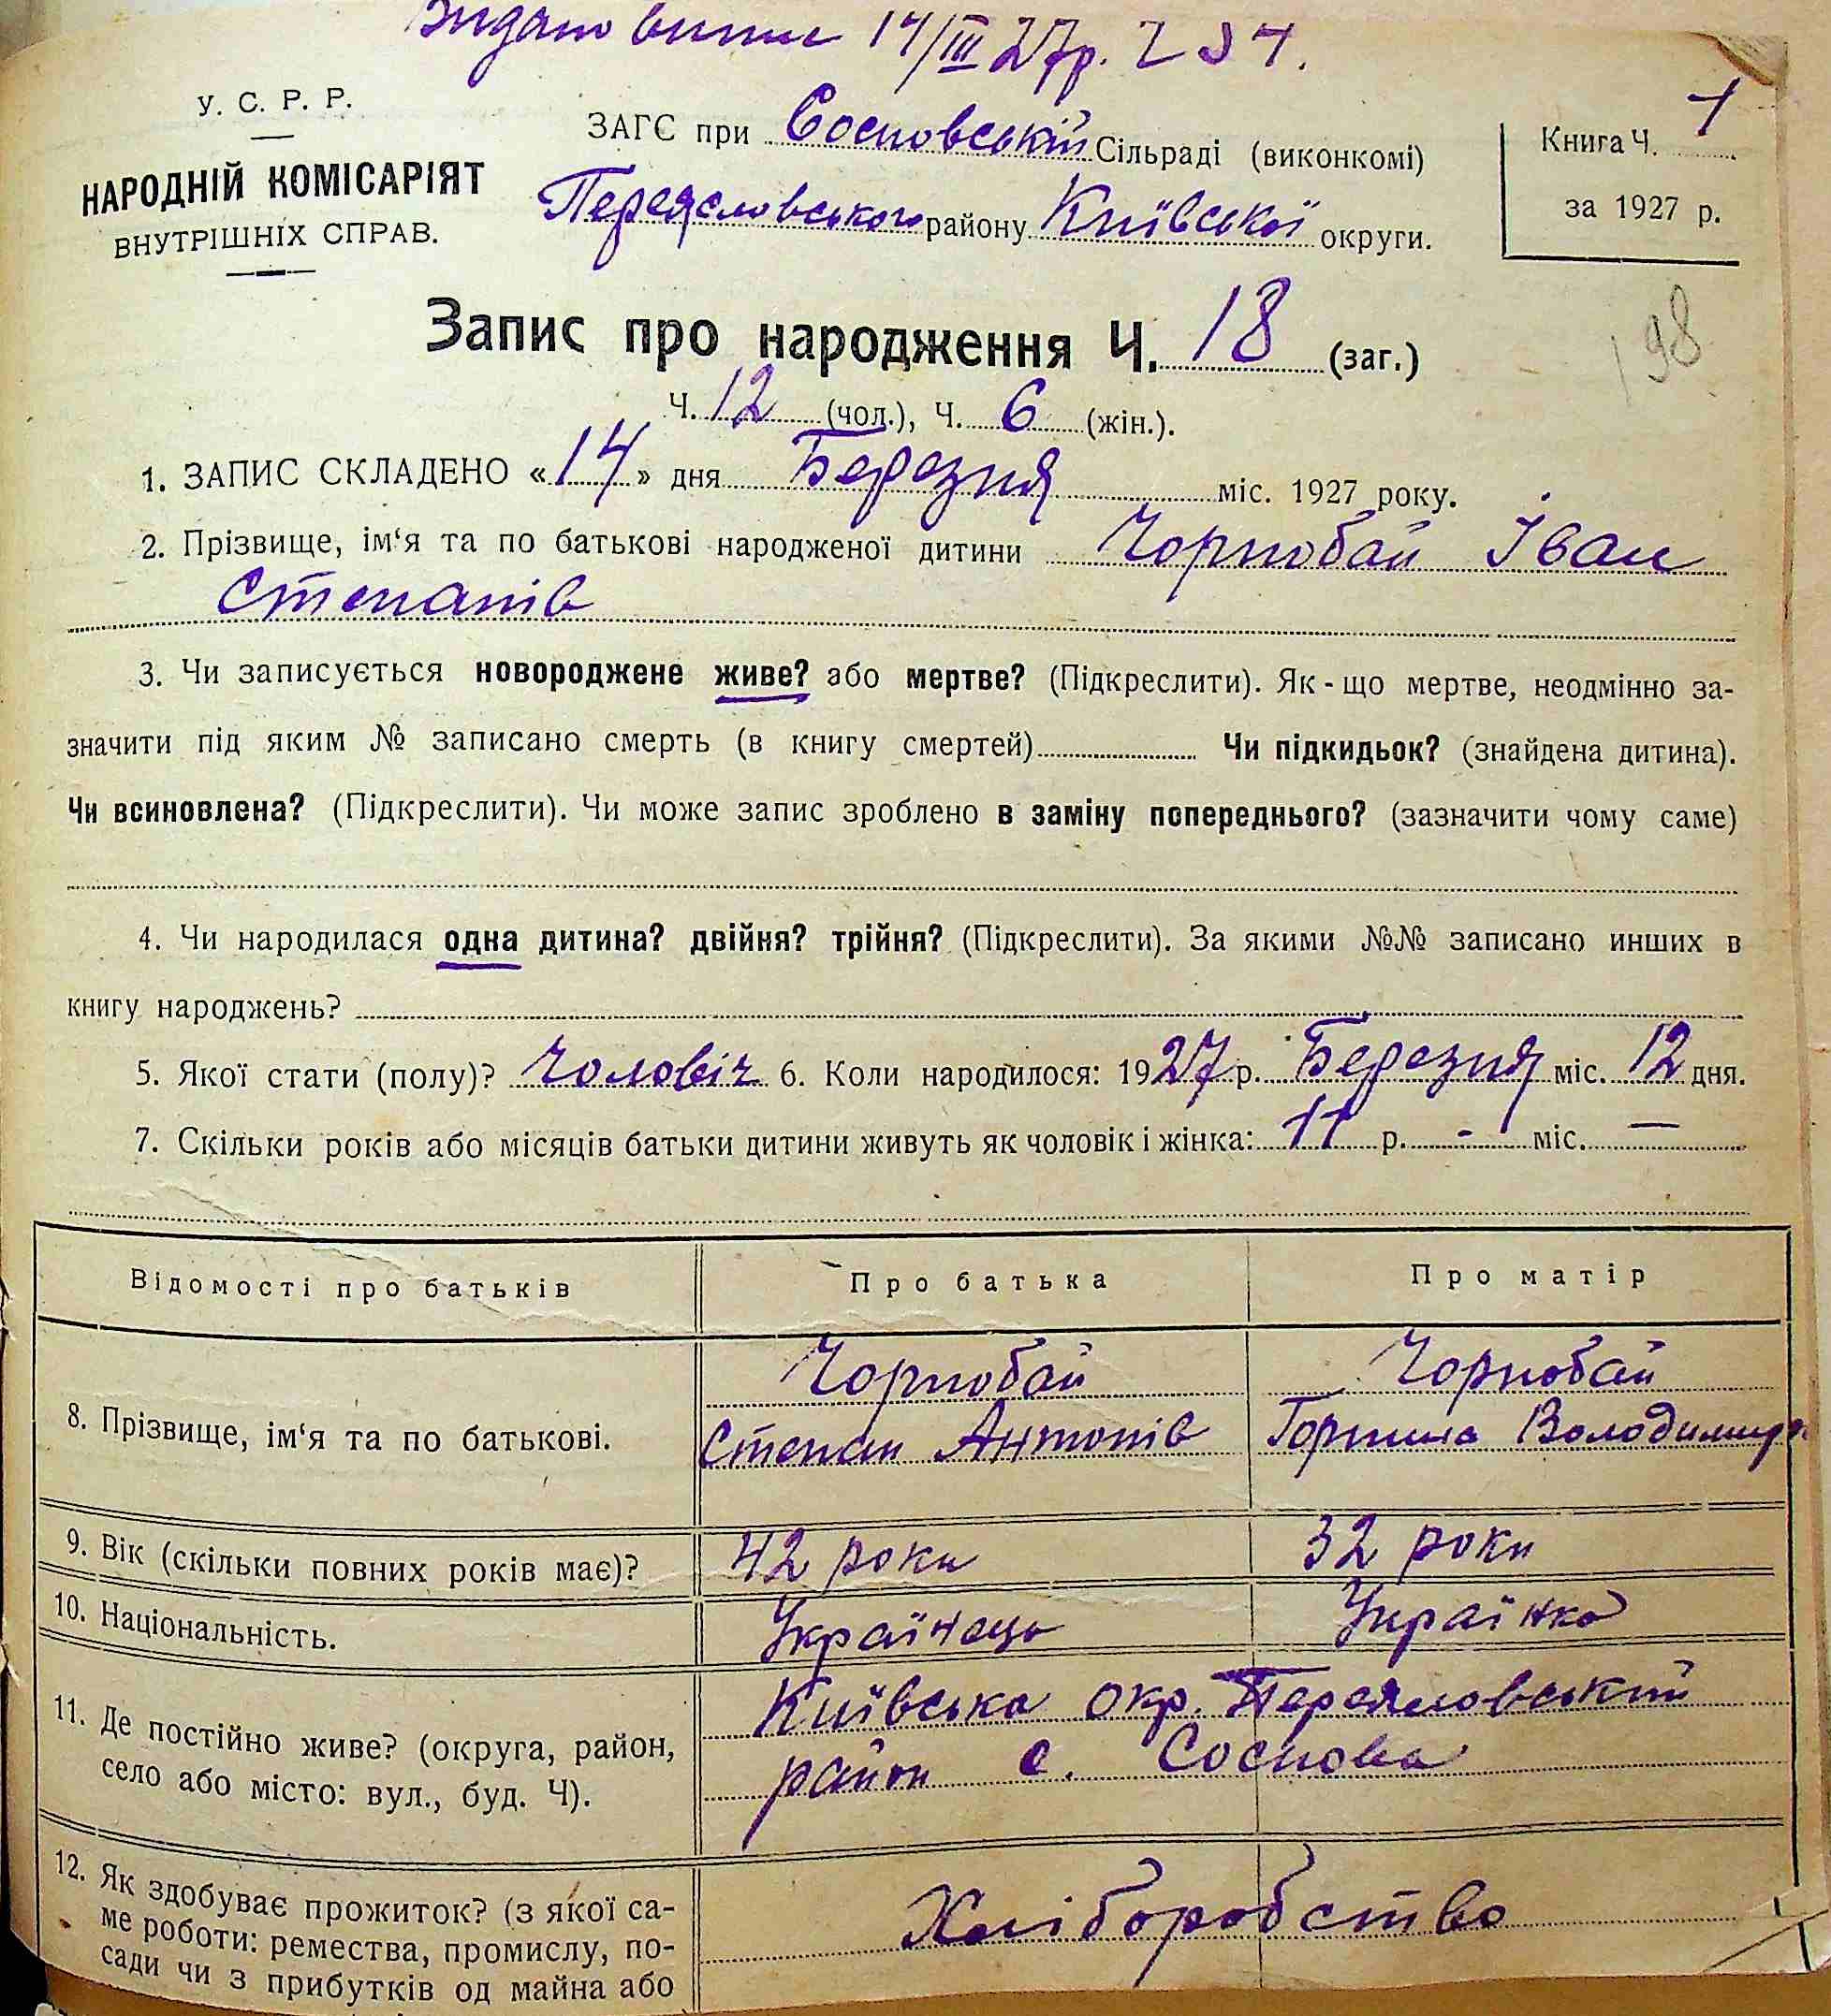 Видано випис 14/III 27р. Ч 34.
У. С. Р. Р.
НАРОДНІЙ КОМІСАРІЯТ
ВНУТРІШНІХ СПРАВ.
ЗАГС при Сосновській Сільраді (виконкомі)
Переясловського району Київської округи.
Книга Ч. 1
за 1927 р.
198
Запис про народження Ч. 18 (заг.)
Ч. 12 (чол.), Ч. 6 (жін.).
1. ЗАПИС СКЛАДЕНО «14» дня Березня міс. 1927 року.
2. Прізвище, ім‘я та по батькові народженої дитини Чорнобай Іван
Степанів
3. Чи записується новороджене живе? або мертве? (Підкреслити). Як-що мертве, неодмінно за-
значити під яким № записано смерть (в книгу смертей) Чи підкидьок? (знайдена дитина).
Чи всиновлена? (Підкреслити). Чи може запис зроблено в заміну попереднього? (зазначити чому саме)
4. Чи народилася одна дитина? двійня? трійня? (Підкреслити). За якими №№ записано инших в
книгу народжень?
5. Якої стати (полу)? Чоловіч 6. Коли народилося: 1927 р. Березня міс. 12 дня.
7. Скільки років або місяців батьки дитини живуть як чоловік і жінка: 11 р. - міс. —
Відомості про батьків Про батька Про матір
8. Прізвище, ім‘я та по батькові.
Чорнобай
Степан Антонів
Чорнобай
Горпина Володимир
9. Вік (скільки повних років має)? 42 роки 32 роки
10. Національність. Українець Українка
11. Де постійно живе? (округа, район,
село або місто: вул., буд. Ч).
Київська окр. Переясловський
район с. Соснова
12. Як здобуває прожиток? (з якої са-
ме роботи: ремества, промислу, по-
сади чи з прибутків од майна або
Хліборобство